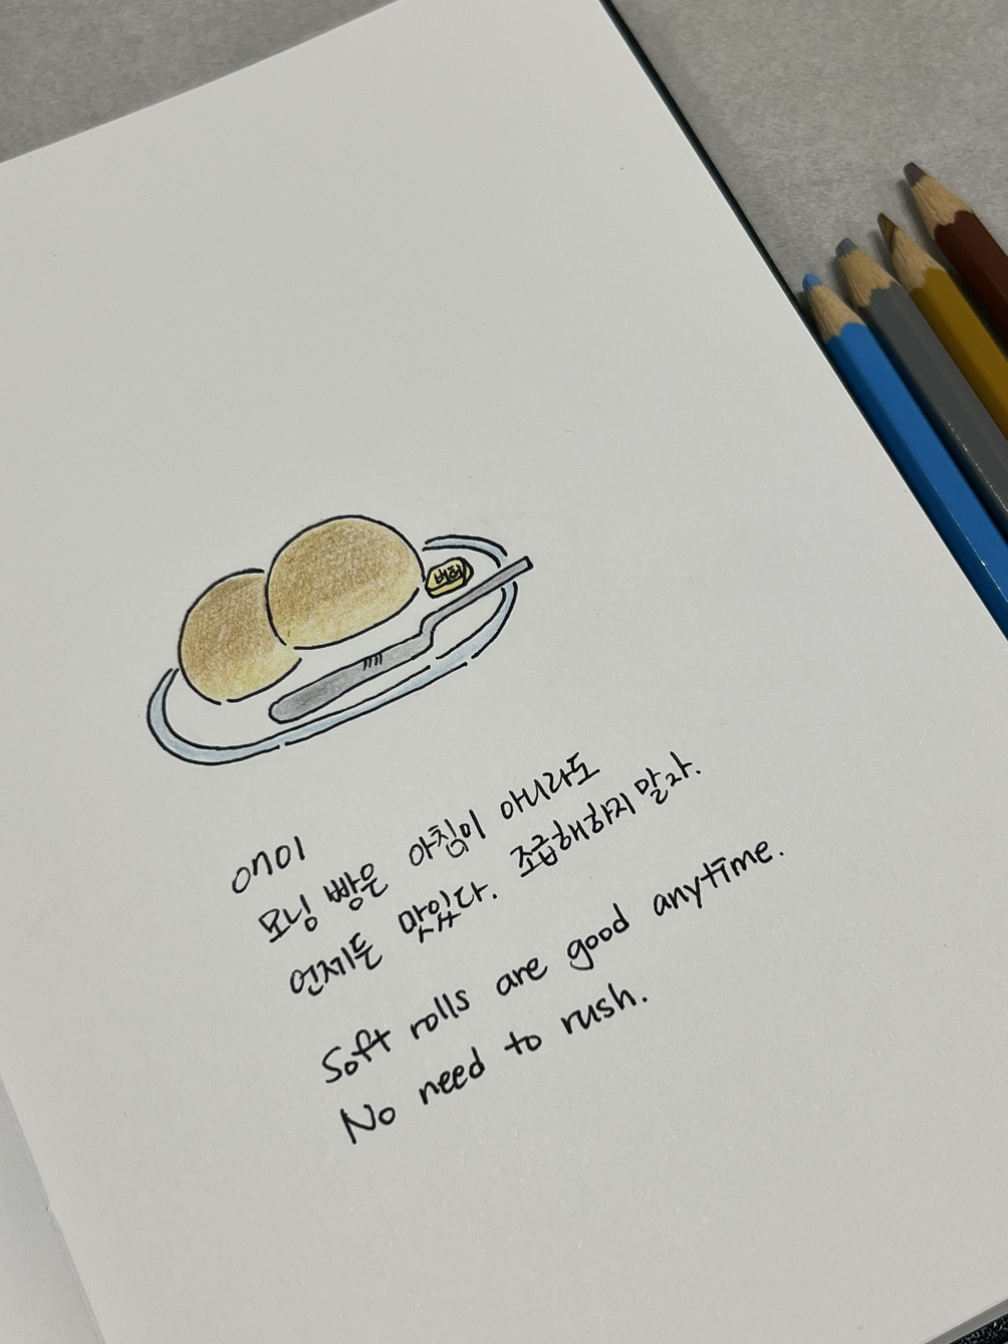 버터
0701
모닝 빵은 아침이 아니라도
언제든 맛있다. 조급해하지 말자.
Soft rolls are good anytime.
No need to rush.